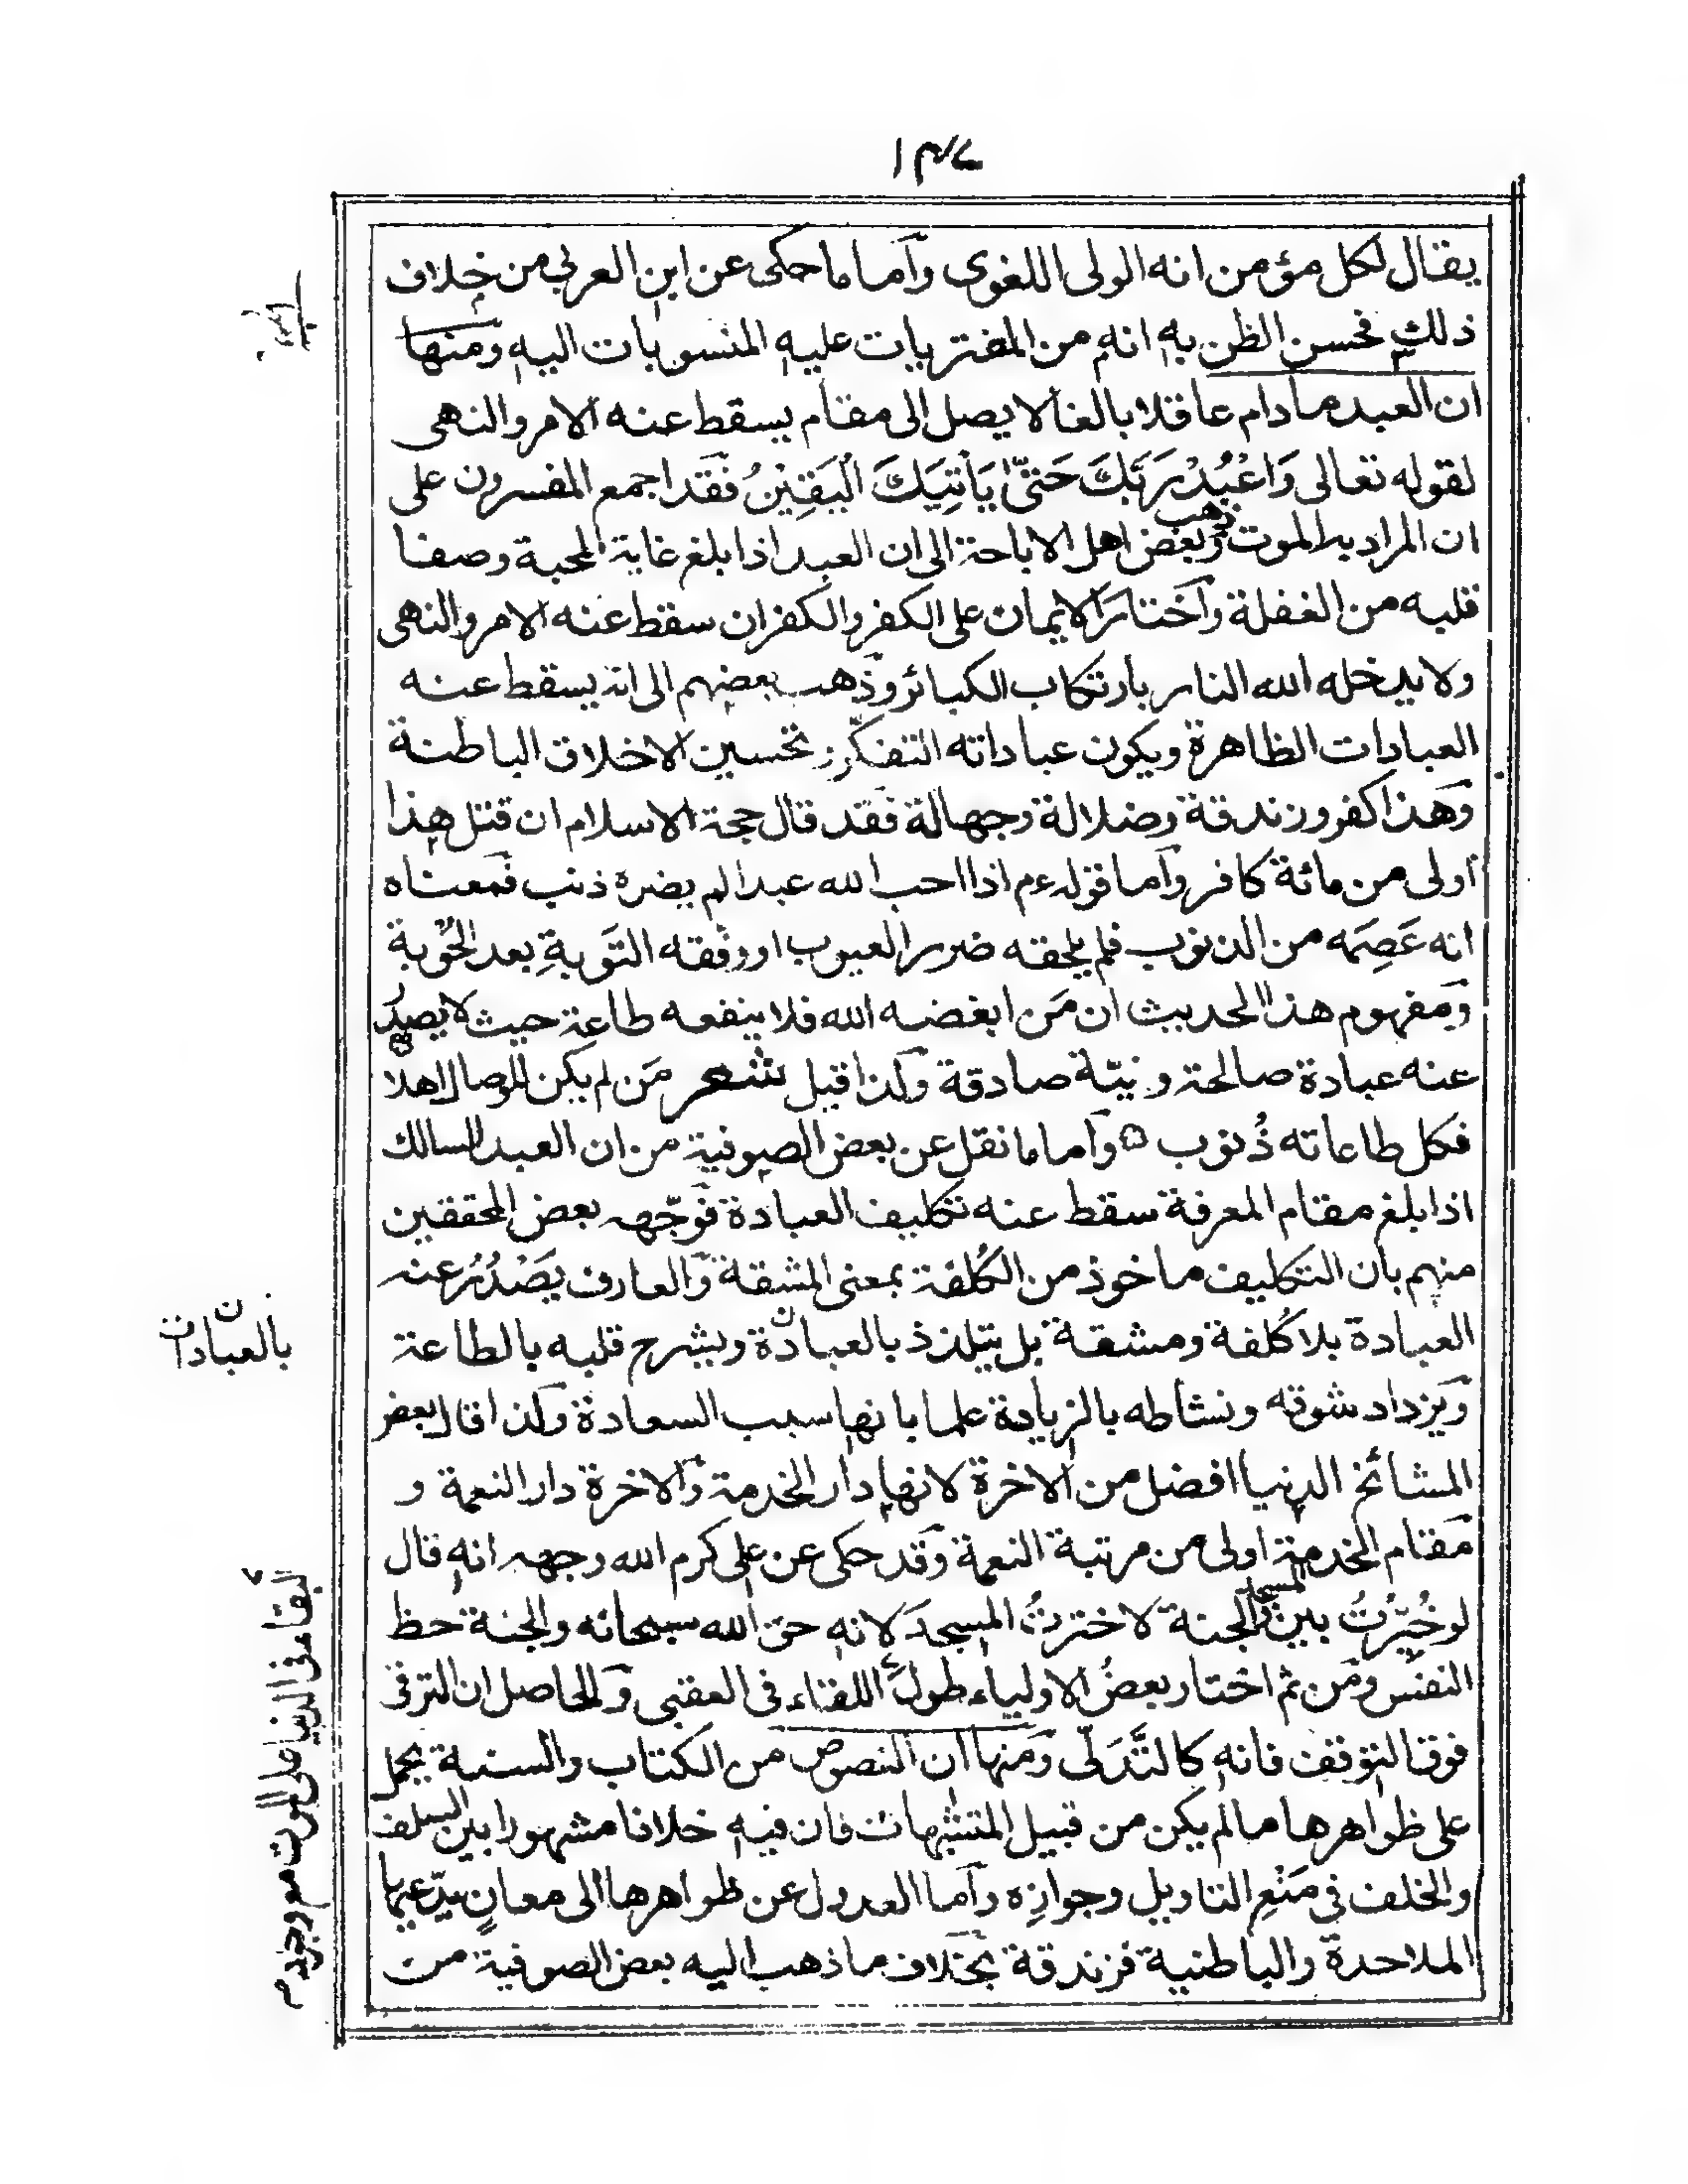 يقال لكل مؤمن انه الولى اللغوى وأما ما حكى عن ابن العربي من خلاف
ذلك فحسن الظن به انه من المفتريات عليه المنسوبات اليه ومنها
ان العبد مادام عاقلا بالغا لا يصل الى مقام يسقط عنه الامر والنهى
لقوله تعالى وَاعْبُدْ رَبَّكَ حَتّٰى يَأْتِيَكَ الْيَقِيْنُ فقد اجمع المفسرون على
ان المراد به الموت وذهب بعض اهل الاباحة الى ان العبد اذا بلغ غاية المحبة وصفا
قلبه من الغفلة واختار الايمان على الكفر والكفران سقط عنه الامر والنهى
ولا يدخله الله النار بارتكاب الكبائر وذهب بعضهم الى انه يسقط عنه
العبادات الظاهرة ويكون عباداته التفكر وتحسين الاخلاق الباطنة
وهذا كفر وزندقة وضلالة وجهالة فقد قال حجة الاسلام ان قتل هذا
أولى من مائة كافر وأما قوله عم اذا احب الله عبدا لم يضره ذنب فمعناه
انه عَصِمَه من الذنوب فلم يلحقه ضرر العيوب او وفقه التَوبةِ بعد الحُوبة
ومفهوم هذا الحديث ان مَن ابغضه الله فلا ينفعه طاعة حيث لا يصدر
عنه عبادة صالحة ونيّة صادقة ولذا قيل شعر مَن لم يكن للوصال اهلا
فكل طاعاته ذُنوب وأما ما نقل عن بعض الصوفية من ان العبد السالك
اذا بلغ مقام المعرفة سقط عنه تكليف العبادة فوجّهه بعض المحققين
منهم بان التكليف ماخوذ من الكُلفة بمعنى المشقة والعارف يَصْدُرُ عنه
العبادة بلا كُلفة ومشقة بل يتلذذ بالعبادة وينشرح قلبه بالطاعة
ويزداد شوقه ونشاطه بالزيادة علما بانها سبب السعادة ولذا قال بعض
المشائخ الدنيا افضل من الاخرة لانها دار الخدمة والاخرة دار النعمة و
مقام الخدمة اولى من مرتبة النعمة وقد حكى عن على كرم الله وجهه انه قال
لو خُيّرْتُ بين المسجد والجنة لاخترتُ المسجدَ لانه حق الله سبحانه والجنة حظ
النفس ومن ثم اختار بعضُ الاولياء طولَ اللقاء فى العقبى والحاصل ان الترقى
فوق التوقف فانه كالتَّدَلّى ومنها ان النصوص من الكتاب والسنة يحمل
على ظواهرها ما لم يكن من قبيل المتشبهات فان فيه خلافا مشهورا بين السلف
والخلف فى مَنْعِ التاويل وجوازِه وأما العدول عن ظواهرها الى معانٍ يدّعيها
الملاحدة والباطنية فزندقة بخلاف ما ذهب اليه بعض الصوفية من
بالعبادات
البقاء فى الدنيا على الموت مع وجود